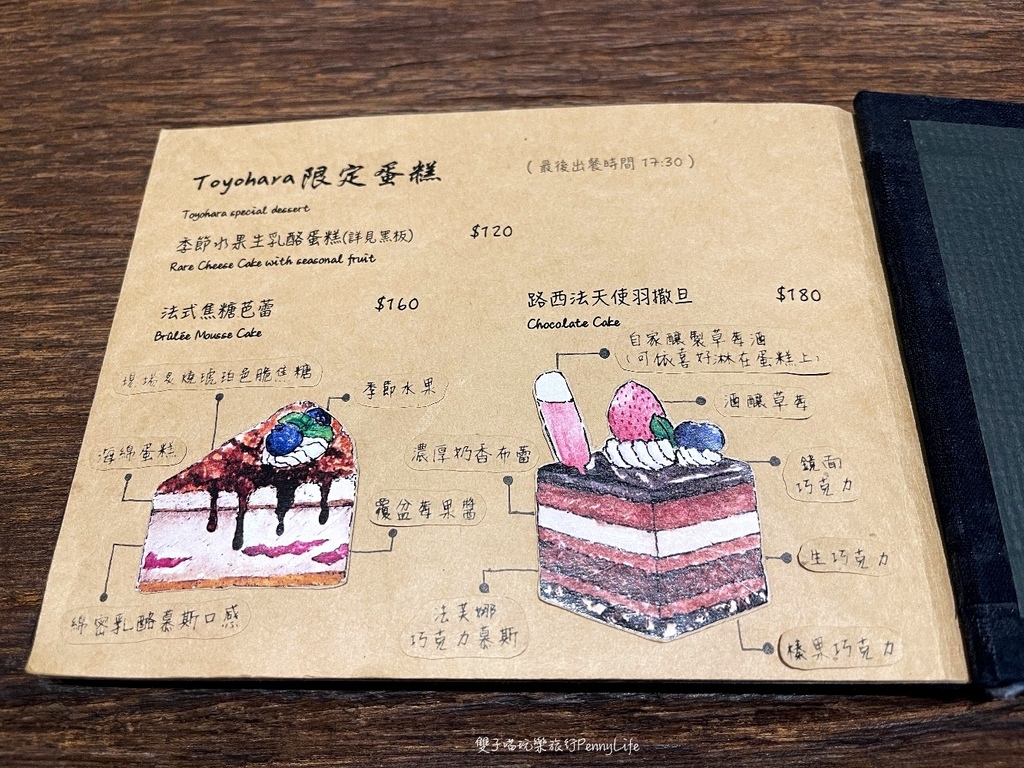 Toyohara限定蛋糕
（最後出餐時間 17:30）
Toyohara special dessert
季節水果生乳酪蛋糕(詳見黑板) $120
Rare Cheese Cake with seasonal fruit
法式焦糖芭蕾 $160
Brûlée Mousse Cake
路西法天使羽撒旦 $180
Chocolate Cake
現場炙燒琥珀色脆焦糖
季節水果
海綿蛋糕
覆盆莓果醬
綿密乳酪慕斯口感
自家釀製草莓酒
(可依喜好淋在蛋糕上)
酒釀草莓
濃厚奶香布蕾
鏡面
巧克力
生巧克力
法芙娜
巧克力慕斯
榛果巧克力
雙子喵玩樂旅行PennyLife